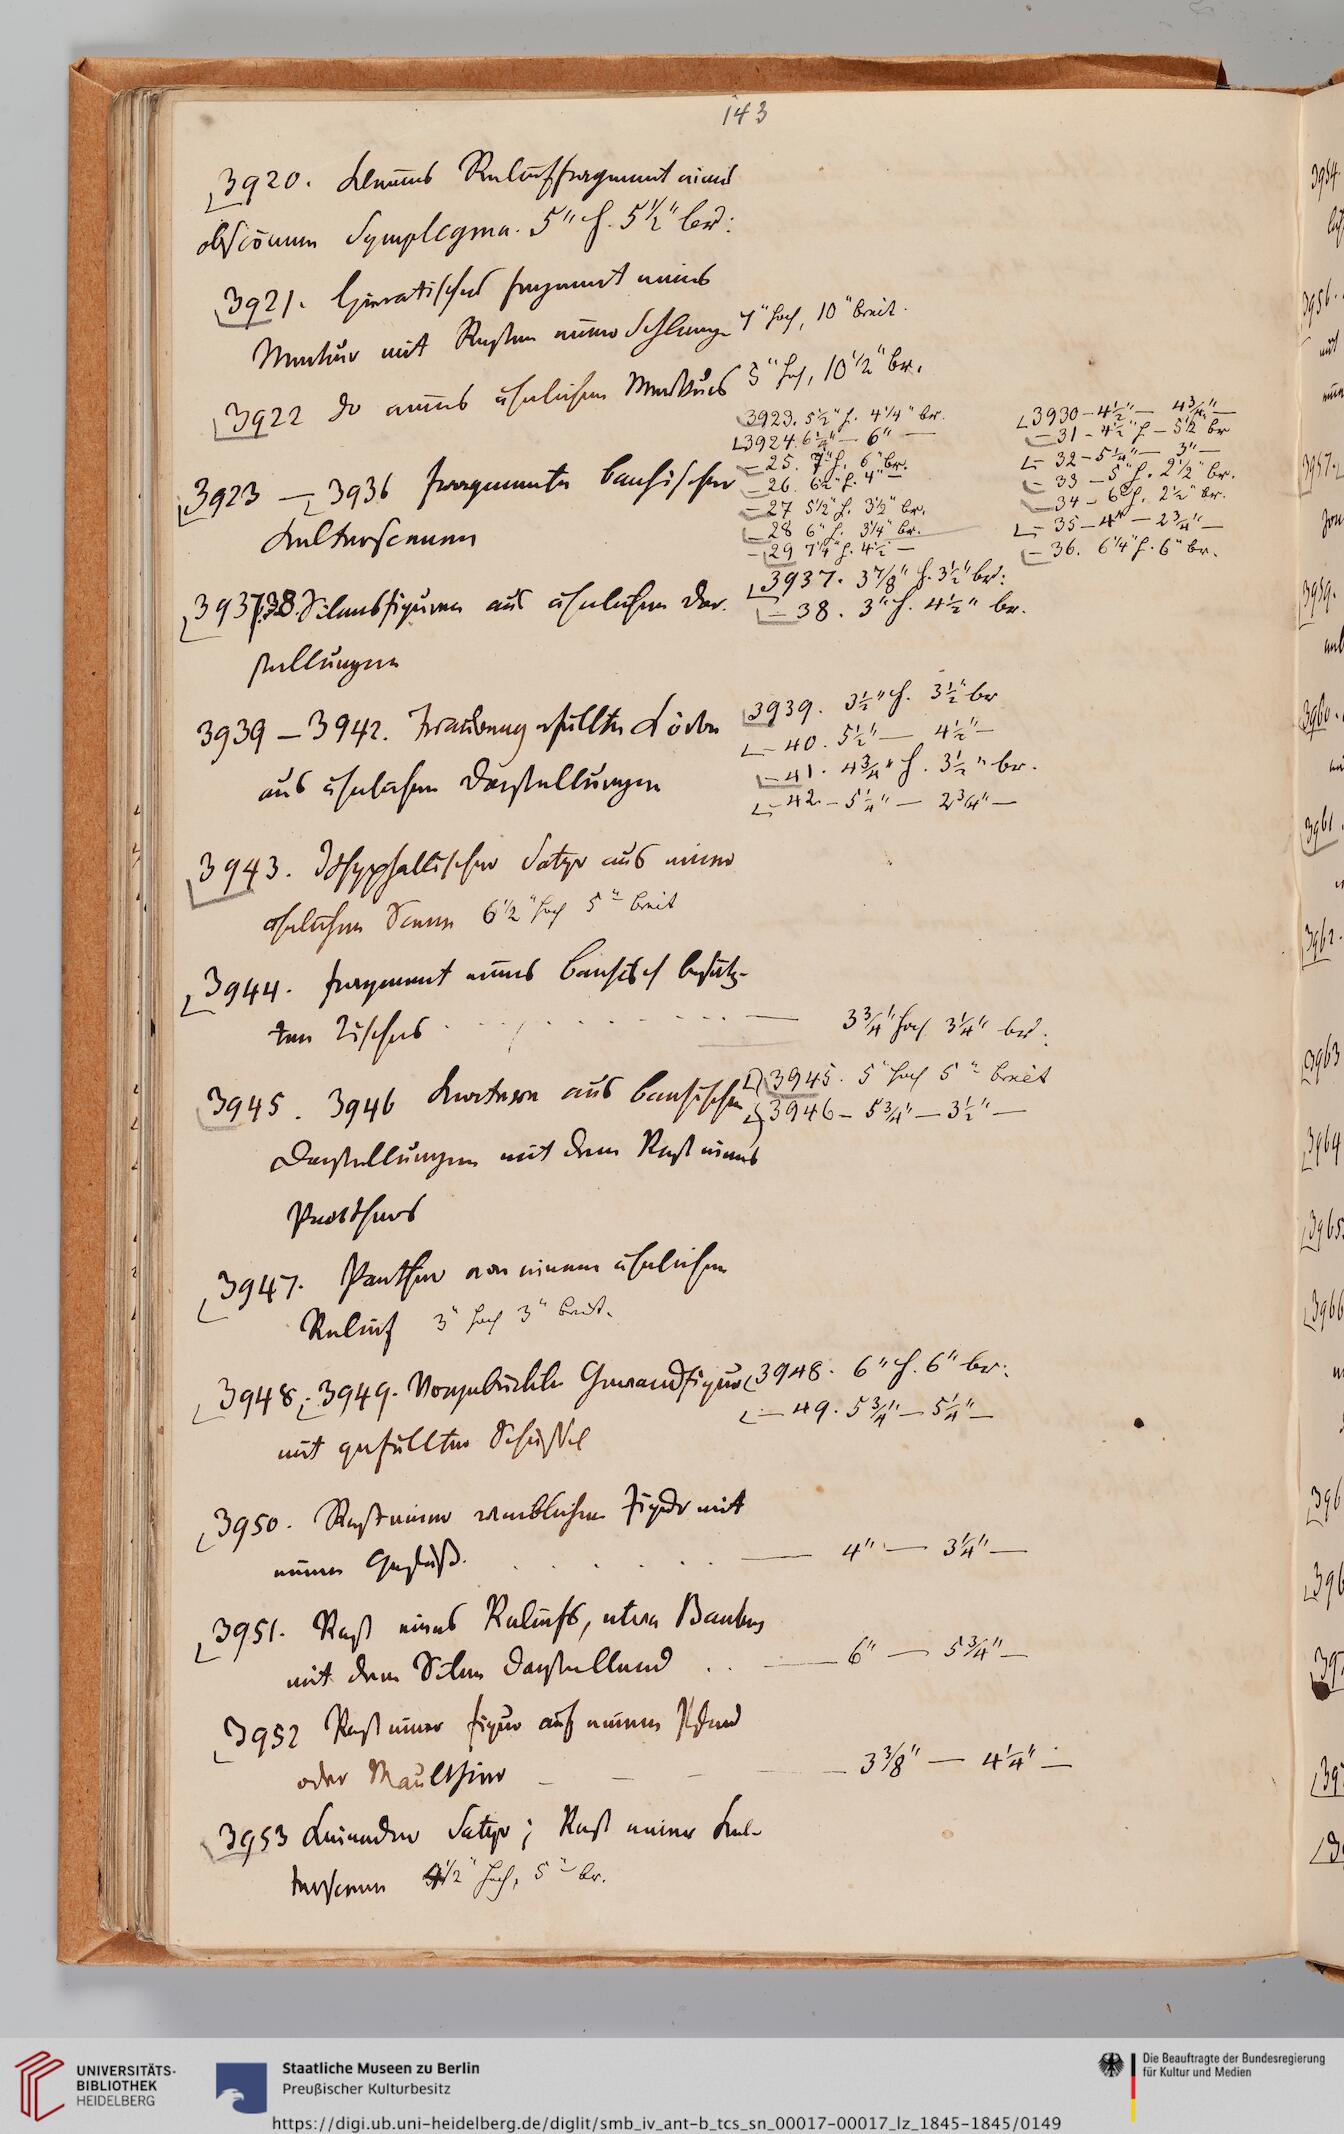 143
3920. Kleines Relieffragment eines
obscönen Symplegma. 5" h. 5½" br:
3921. Hieratisches Fragment eines
Merkur mit Resten einer Schlange 7" hoch, 10" breit.
3922 do eines ähnlichen Merkurs 5" hoch, 10½" br.
3923 — 3936 Fragmente bacchischer
Kelterscenen
3923. 5½" h. 4¼" br.
3924. 6¼" — 6" —
— 25. 7" h. 6" br.
— 26. 6½" h. 4" —
— 27 5½" h. 3½" br.
— 28 6" h. 3¼" br.
— 29 7¼" h. 4½" —
3930 — 4½" — 4¾" —
— 31 - 4½" h — 5½" br
— 32 — 5¼" — 3" —
— 33 — 5" h. 2½" br.
— 34 — 6" h. 2½" br.
— 35 — 4" — 2¾" —
— 36. 6¼" h. 6" br.
3937.38. Silensfiguren aus ähnlichen Dar-
stellungen
3937. 3⅞" h. 3½" br:
— 38. 3" h. 4½" br.
3939 — 3942. Traubenangefüllte Körbe
aus ähnlichen Darstellungen
3939. 3½" h. 3½" br
— 40. 5½" — 4½" —
— 41. 4¾" h. 3½" br.
— 42 — 5¼" — 2¾" —
3943. Ithyphallischer Satyr aus einer
ähnlichen Scene 6½" hoch 5" breit
3944. Fragment eines bacchisch besetz-
ten Tisches — 3¾" hoch 3¼" br:
3945. 3946 Kelterer aus bacchischen
Darstellungen mit dem Rest eines
Panthers
3945. 5" hoch 5" breit
3946 — 5¾" — 3½" —
3947. Panther von einem ähnlichen
Relief 3" hoch 3" breit.
3948. 3949. Vorgebückte Gewandfigur
mit gefüllter Schüssel
3948. 6" h. 6" br:
— 49. 5¾" — 5¼" —
3950. Rest einer weiblichen Figur mit
einem Gefäß. — 4" — 3¼" —
3951. Rest eines Reliefs, etwa Baubo
mit dem Silen darstellend — 6" — 5¾" —
3952 Rest einer Figur auf einem Pferd
oder Maulthier — 3⅜" — 4¼" —
3953 Satyr; Rest einer Kel-
terscene 4½" hoch, 5" br.
UNIVERSITÄTS-
BIBLIOTHEK
HEIDELBERG
Staatliche Museen zu Berlin
Preußischer Kulturbesitz
Die Beauftragte der Bundesregierung
für Kultur und Medien
https://digi.ub.uni-heidelberg.de/diglit/smb_iv_ant-b_tcs_sn_00017-00017_lz_1845-1845/0149